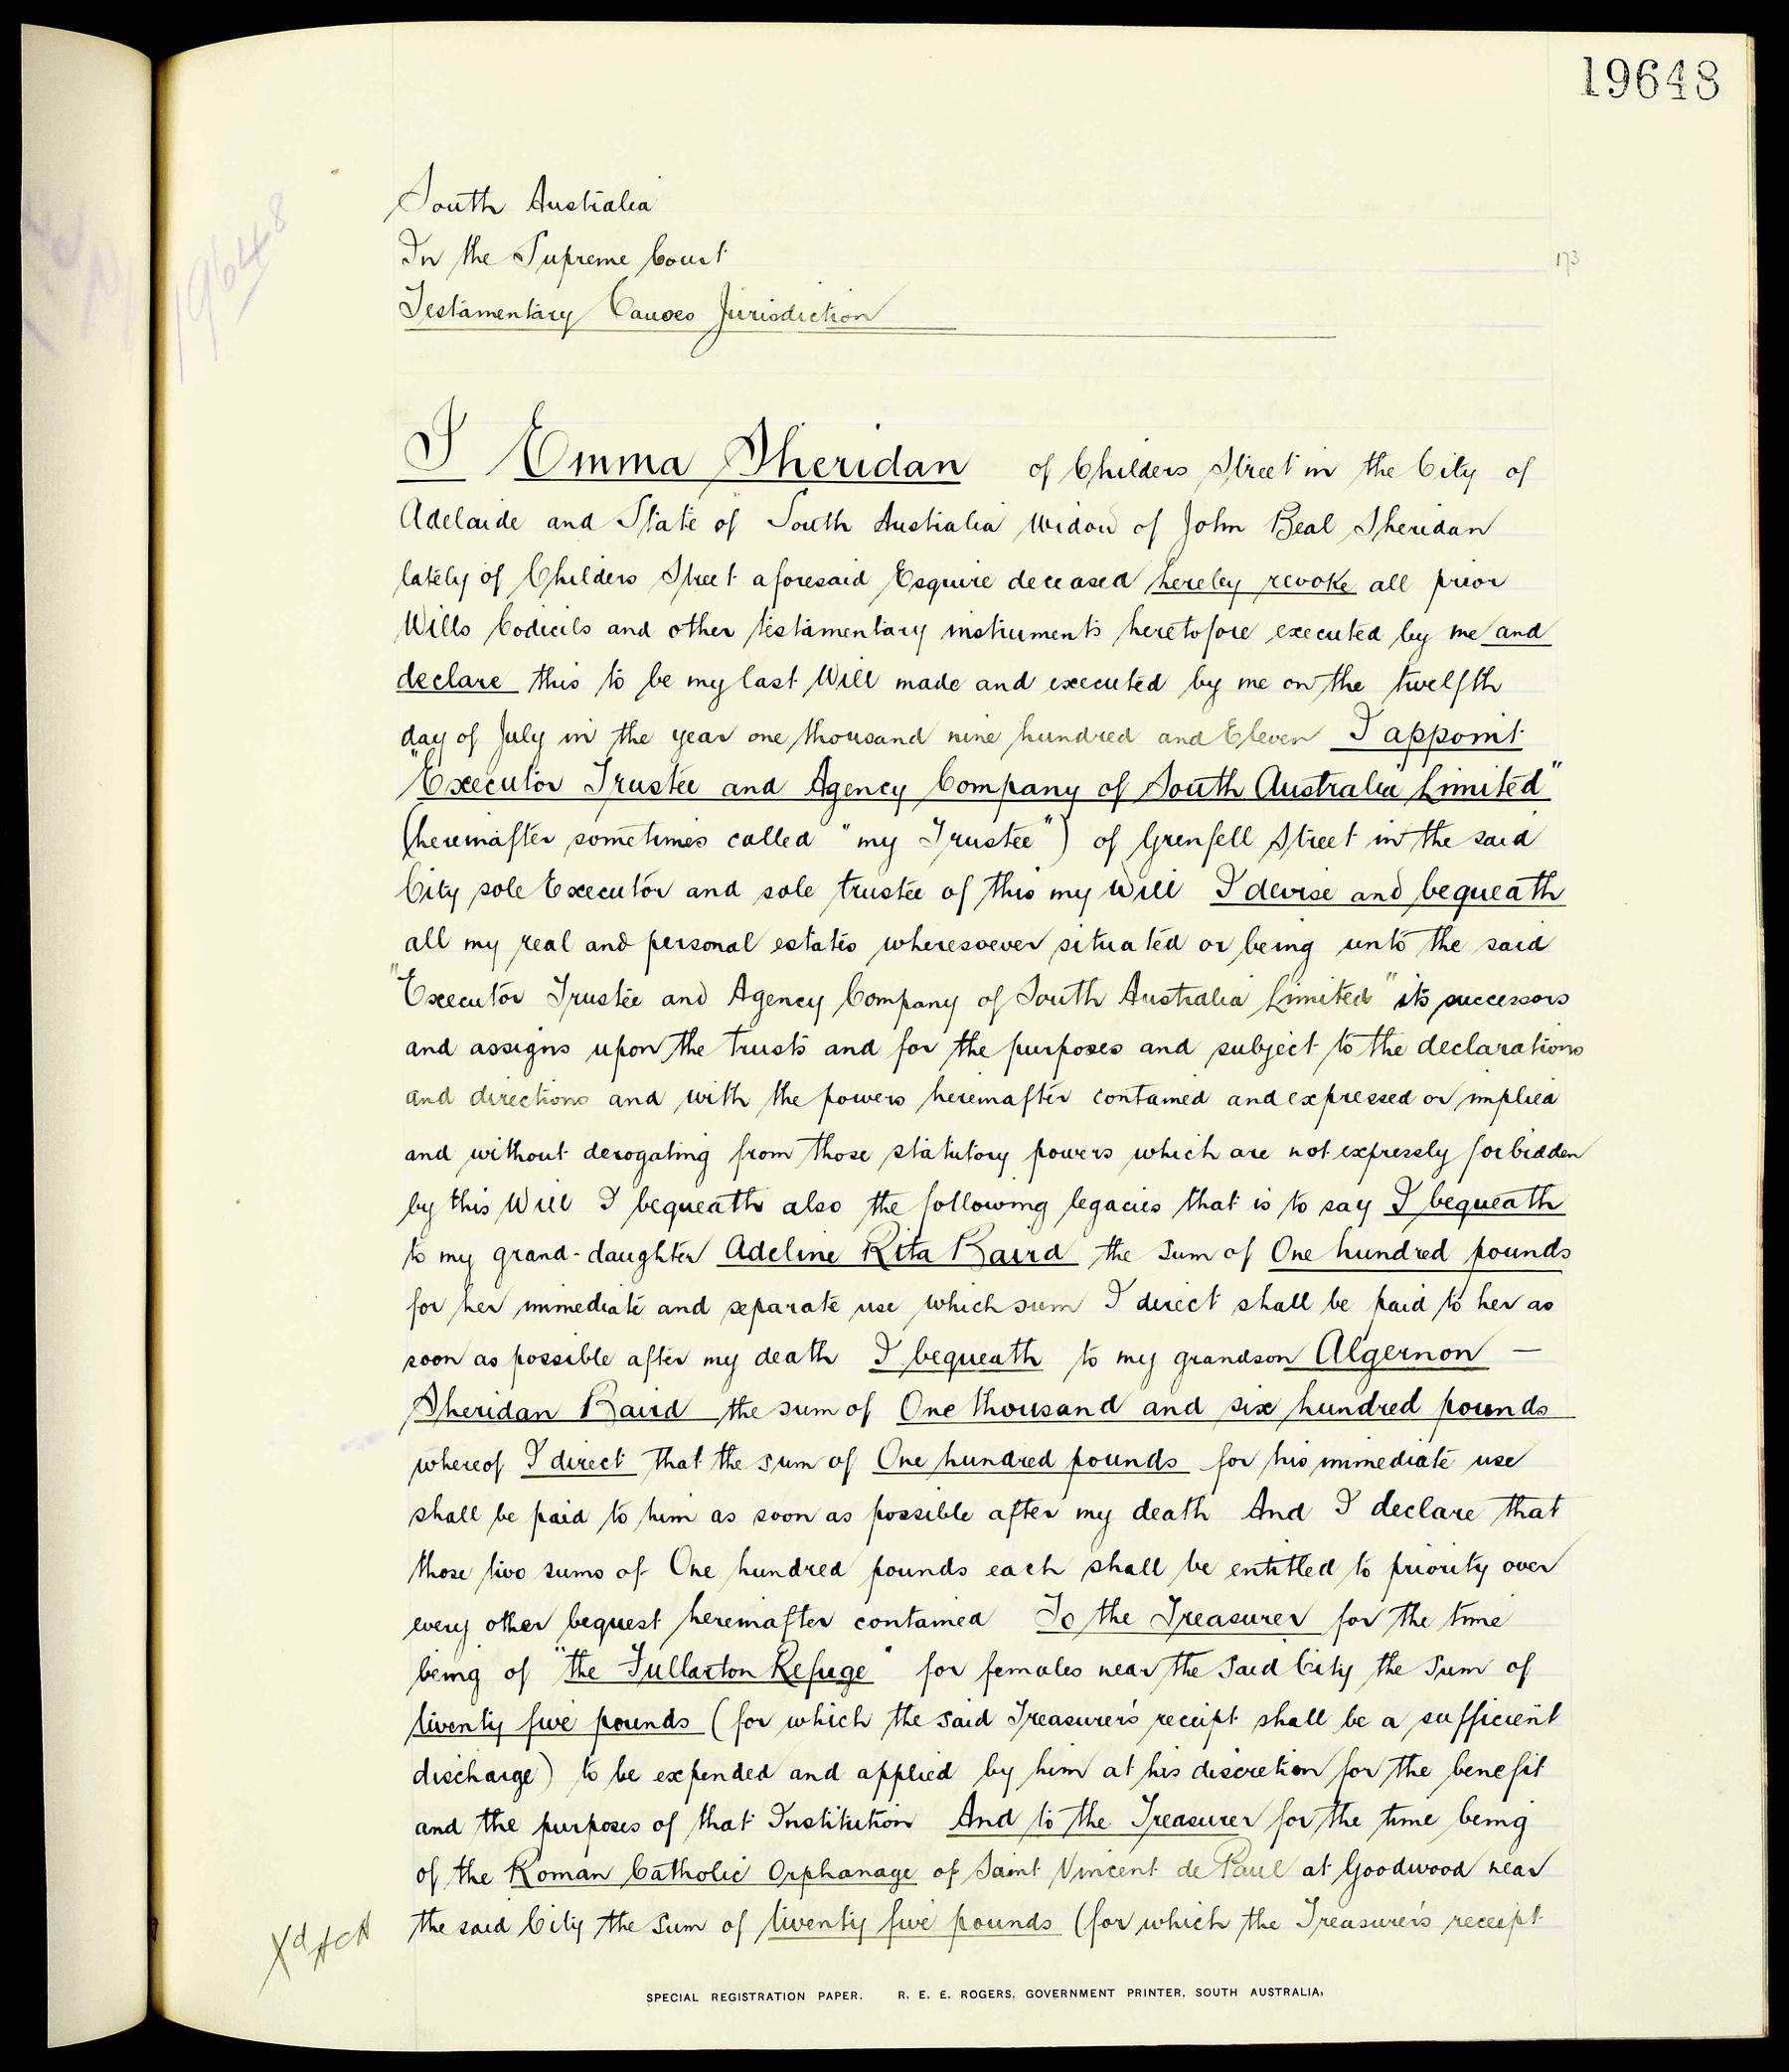 19648
19648
South Australia
In the Supreme Court
173
Testamentary Causes Jurisdiction
I Emma Sheridan of Childers Street in the City of
Adelaide and State of South Australia Widow of John Beal Sheridan
lately of Childers Street aforesaid Esquire deceased hereby revoke all prior
Wills Codicils and other testamentary instruments heretofore executed by me and
declare this to be my last Will made and executed by me on the twelfth
day of July in the year one thousand nine hundred and Eleven I appoint
"Executor Trustee and Agency Company of South Australia Limited"
(hereinafter sometimes called "my Trustee") of Grenfell Street in the said
City sole Executor and sole trustee of this my Will I devise and bequeath
all my real and personal estates wheresoever situated or being unto the said
"Executor Trustee and Agency Company of South Australia Limited" its successors
and assigns upon the trusts and for the purposes and subject to the declarations
and directions and with the powers hereinafter contained and expressed or implied
and without derogating from those statutory powers which are not expressly forbidden
by this Will I bequeath also the following legacies that is to say I bequeath
to my grand-daughter Adeline Rita Baird the sum of One hundred pounds
for her immediate and separate use which sum I direct shall be paid to her as
soon as possible after my death I bequeath to my grandson Algernon —
Sheridan Baird the sum of One thousand and six hundred pounds
whereof I direct that the sum of One hundred pounds for his immediate use
shall be paid to him as soon as possible after my death And I declare that
those two sums of One hundred pounds each shall be entitled to priority over
every other bequest hereinafter contained To the Treasurer for the time
being of "the Fullarton Refuge" for females near the said City the sum of
twenty five pounds (for which the said Treasurer's receipt shall be a sufficient
discharge) to be expended and applied by him at his discretion for the benefit
and the purposes of that Institution And to the Treasurer for the time being
of the Roman Catholic Orphanage of Saint Vincent de Paul at Goodwood near
the said City the sum of twenty five pounds (for which the Treasurer's receipt
SPECIAL REGISTRATION PAPER. R. E. E. ROGERS, GOVERNMENT PRINTER, SOUTH AUSTRALIA.